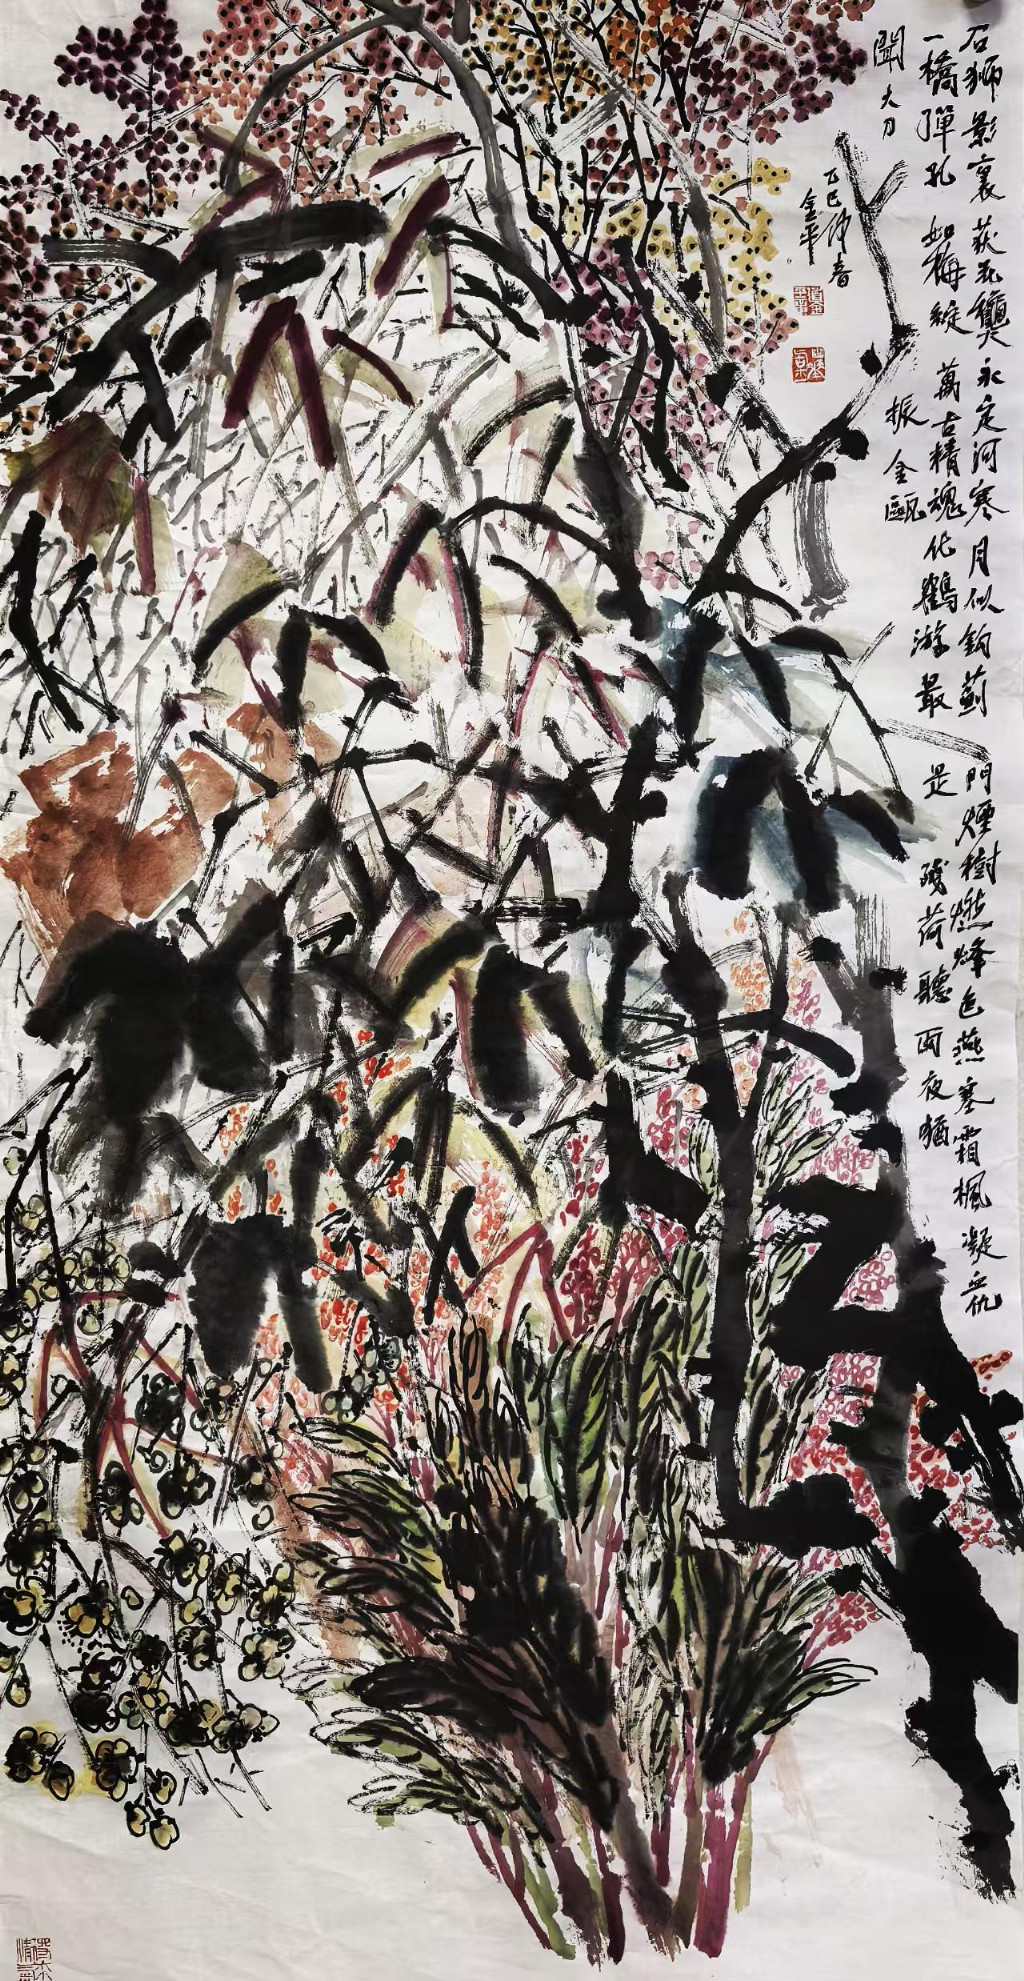 石狮影裏荻花龝永定河寒月似鈎薊門煙樹燃烽色燕塞霜楓凝血仇
一橋彈孔如梅綻萬古精魂化鶴游最是殘荷聽雨夜猶
聞大刀振金甌
乙巳仲春
金平